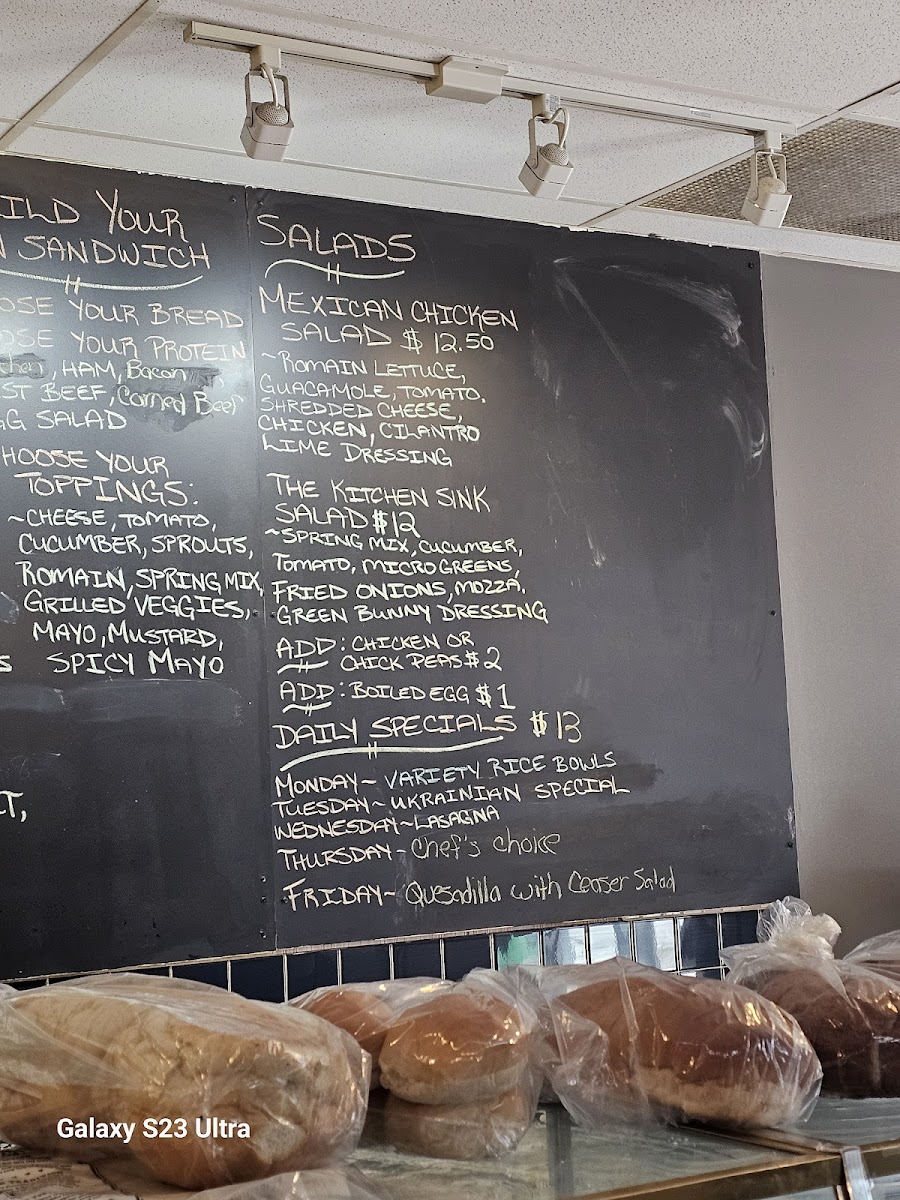 ILD YOUR
N SANDWICH
OSE YOUR BREAD
OSE YOUR PROTEIN
, HAM, Bacon
ST BEEF, Corned Beef
GG SALAD
HOOSE YOUR
TOPPINGS:
~CHEESE, TOMATO,
CUCUMBER, SPROUTS,
ROMAIN, SPRING MIX,
GRILLED VEGGIES,
MAYO, MUSTARD,
S SPICY MAYO
T,
SALADS
MEXICAN CHICKEN
SALAD $ 12.50
~ROMAIN LETTUCE,
GUACAMOLE, TOMATO,
SHREDDED CHEESE,
CHICKEN, CILANTRO
LIME DRESSING
THE KITCHEN SINK
SALAD $12
~SPRING MIX, CUCUMBER,
TOMATO, MICRO GREENS,
FRIED ONIONS, MOZZA,
GREEN BUNNY DRESSING
ADD: CHICKEN OR
CHICK PEAS $2
ADD: BOILED EGG $1
DAILY SPECIALS $13
MONDAY~ VARIETY RICE BOWLS
TUESDAY~UKRAINIAN SPECIAL
WEDNESDAY~LASAGNA
THURSDAY- Chef's choice
FRIDAY~ Quesadilla with Ceaser Salad
Galaxy S23 Ultra